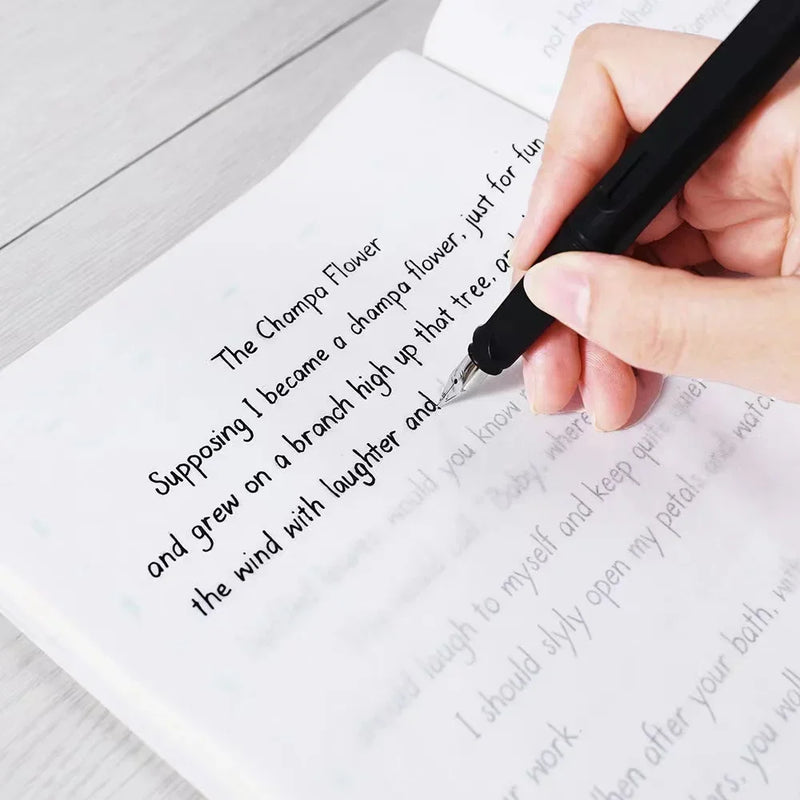 not kn
The Champa Flower
Supposing I became a champa flower, just for fun,
and grew on a branch high up that tree, an
the wind with laughter and
would you know
"Baby, where
laugh to myself and keep quite quiet
I should slyly open my petals and watch
work.
hen after your bath, with
you wal